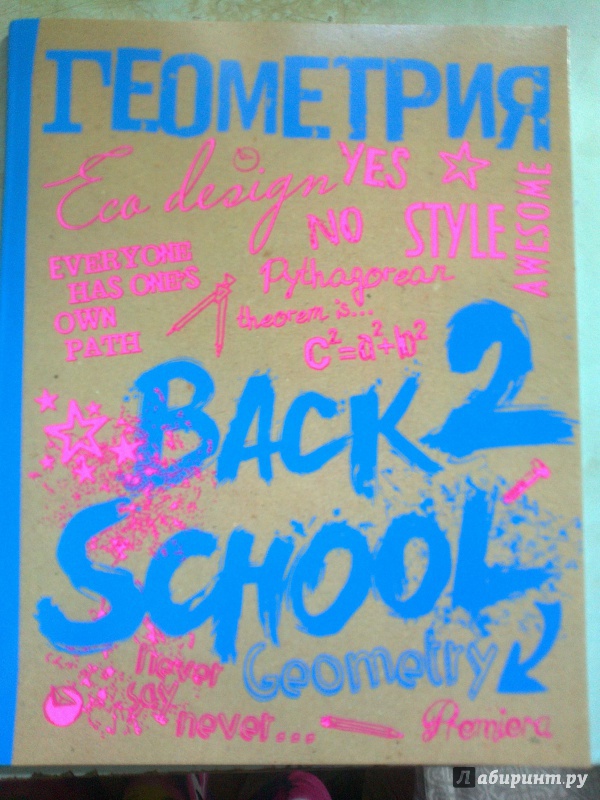 ГЕОМЕТРИЯ
Eco design
YES
NO
STYLE
AWESOME
EVERYONE
HAS ONE'S
OWN
PATH
Pythagorean
theorem is...
c²=a²+b²
BACK 2
SCHOOL
never
say
never...
Geometry
Premiera
Лабиринт.ру